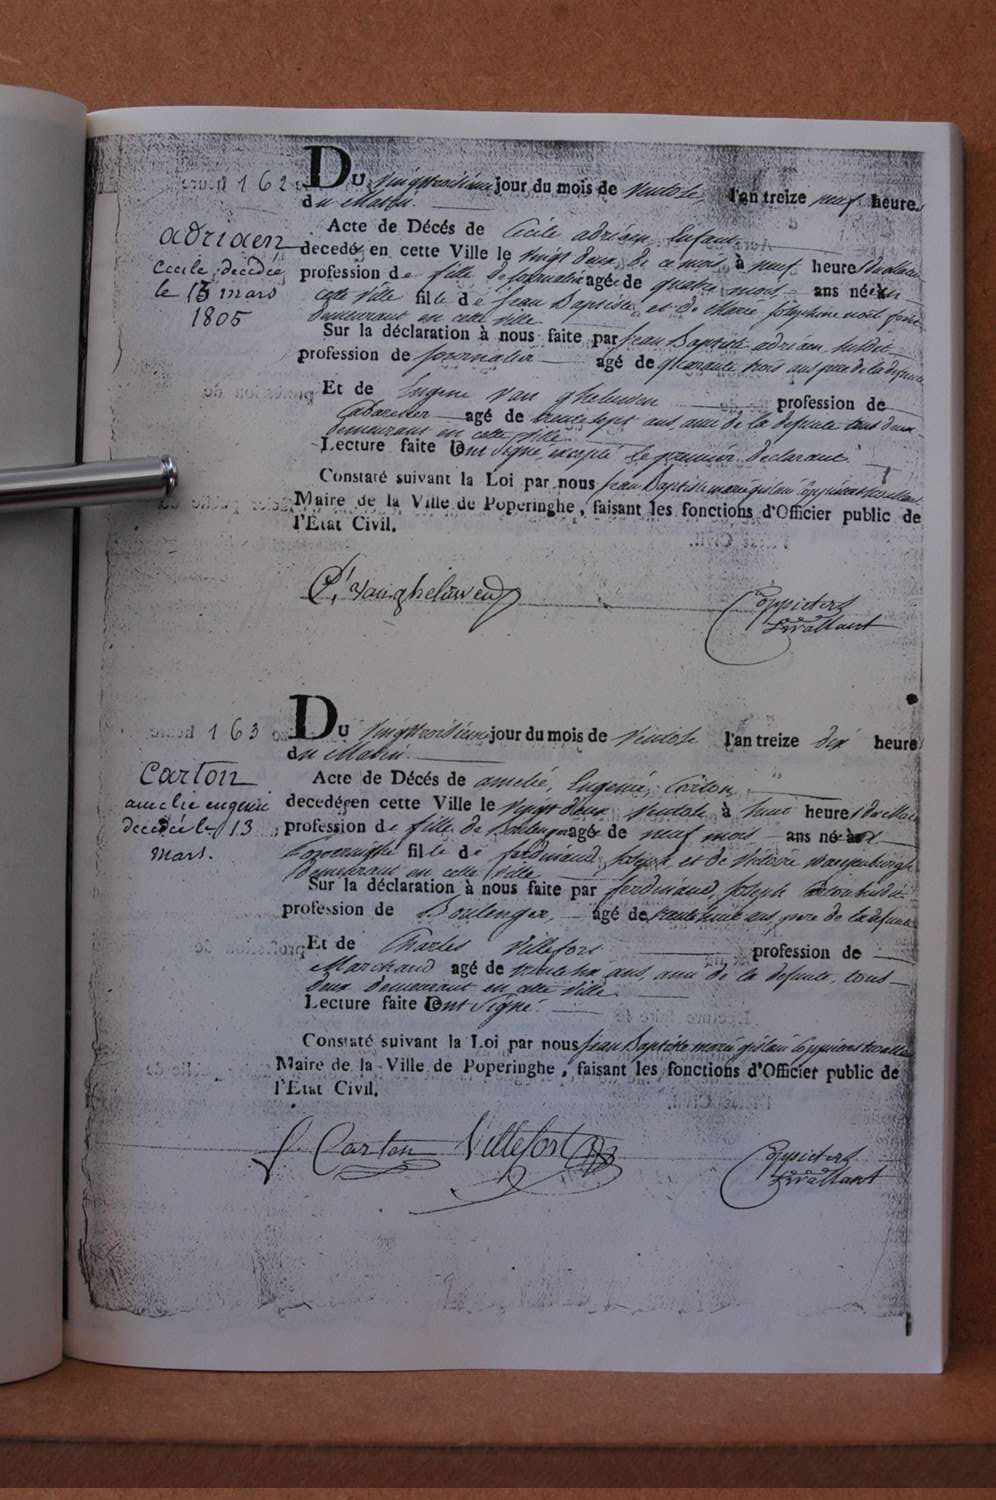 162
DU vingttroisieme jour du mois de Ventose l'an treize neuf heure
du Matin.
adriaen
cecile, decedée
le 13 mars
1805
Acte de Décés de Cecile adriaen, Enfant
decedée en cette Ville le vingt deux de ce mois à neuf heure du
profession de fille de Journalier agée de quatre mois ans née en
cette ville fille de jean Baptiste et de Marie josephine
demeurant en cette ville
Sur la déclaration à nous faite par jean Baptiste adriaen susdit
profession de Journalier agé de quarante trois ans pere de la defunte
Et de Eugene van gheluwen profession de
Cabaretier agé de trente sept ans ami de la defunte tous deux
demeurant en cette ville
Lecture faite Ont signé, excepté le premier declarant
Constaté suivant la Loi par nous jean Baptiste marie gislain Coppieters
Maire de la Ville de Poperinghe, faisant les fonctions d'Officier public de
l'Etat Civil.
Coppieters
163
DU vingttroisieme jour du mois de Ventose l'an treize dix heure
du Matin.
carton
amelie eugenie
decedée le 13
mars.
Acte de Décés de amelie, Eugenie, Carton
decedée en cette Ville le vingt deux Ventose à huit heure du
profession de fille de Boulenger agée de neuf mois ans née à
Poperinghe fille de ferdinand, joseph et de victoire
demeurant en cette ville
Sur la déclaration à nous faite par ferdinand, joseph Carton susdit
profession de Boulenger, agé de trente huit ans, pere de la defunte
Et de Charles Villefort profession de
Marchand agé de trente six ans, ami de la defunte, tous
deux demeurant en cette ville
Lecture faite Ont signé.
Constaté suivant la Loi par nous jean Baptiste marie gislain Coppieters
Maire de la Ville de Poperinghe, faisant les fonctions d'Officier public de
l'Etat Civil.
Carton Villefort
Coppieters